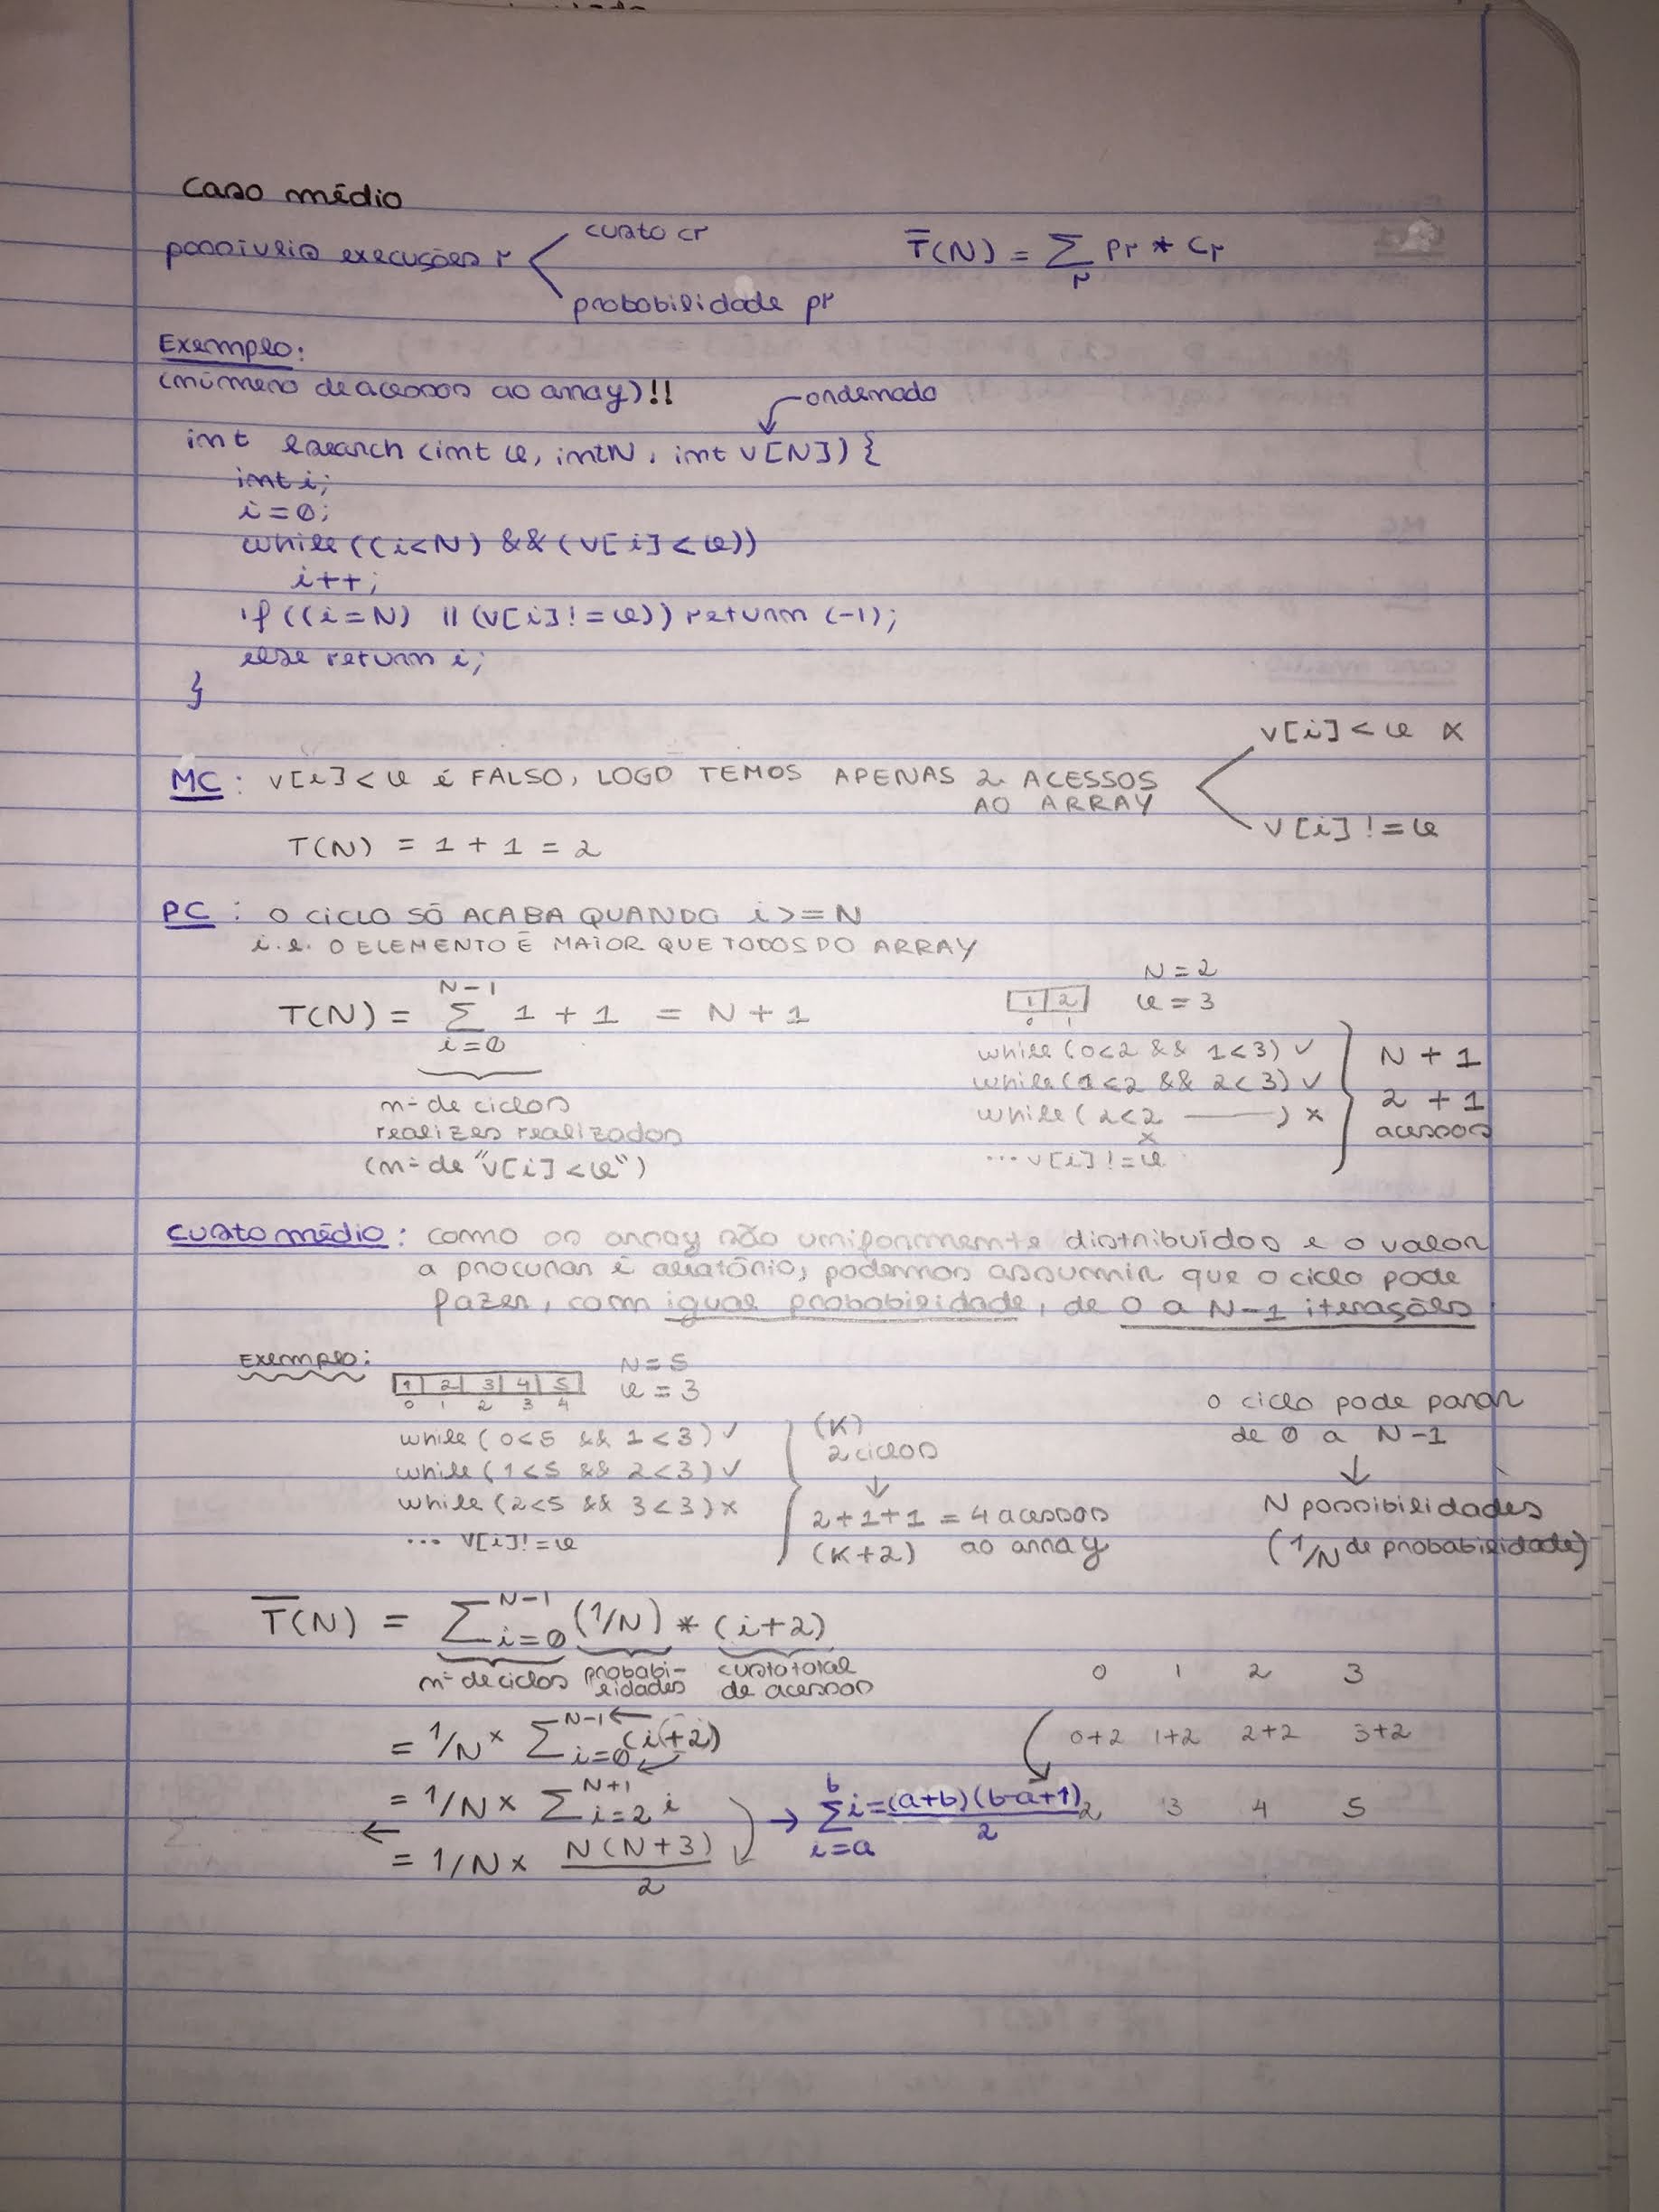 Caso médio
possíveis execuções r
custo cr
probabilidade pr
T̅(N) = Σr pr * cr
Exemplo:
(número de acessos ao array)!!
ordenado
int lsearch (int x, int N, int v[N]) {
int i;
i=0;
while ((i<N) && (v[i]<x))
i++;
if ((i=N) || (v[i]!=x)) return (-1);
else return i;
}
MC: v[i]<x é FALSO, LOGO TEMOS APENAS 2 ACESSOS
AO ARRAY
v[i]<x X
v[i]!=x
T(N) = 1+1 = 2
PC: O CICLO SÓ ACABA QUANDO i>=N
i.e. O ELEMENTO É MAIOR QUE TODOS DO ARRAY
T(N) = Σ_{i=0}^{N-1} 1 + 1 = N+1
nº de ciclos
realizes realizados
(nº de "v[i]<x")
N=2
1 2 x=3
0 1
while (0<2 && 1<3) ✓
while (1<2 && 2<3) ✓
while (2<2 ——) x
x
... v[i]!=x
N+1
2+1
acessos
Custo médio: como os array são uniformemente distribuídos e o valor
a procurar é aleatório, podemos assumir que o ciclo pode
fazer, com igual probabilidade, de 0 a N-1 iterações
Exemplo:
N=5
1 2 3 4 5 x=3
0 1 2 3 4
while (0<5 && 1<3) ✓
while (1<5 && 2<3) ✓
while (2<5 && 3<3) x
... v[i]!=x
(K)
2 ciclos
↓
2+1+1 = 4 acessos
(K+2) ao array
o ciclo pode parar
de 0 a N-1
↓
N possibilidades
(1/N de probabilidade)
T̅(N) = Σ_{i=0}^{N-1} (1/N) * (i+2)
nº de ciclos
probabilidades
custo total
de acessos
= 1/N × Σ_{i=0}^{N-1} (i+2)
= 1/N × Σ_{i=2}^{N+1} i
= 1/N × N(N+3)/2
→ Σ_{i=a}^{b} i = (a+b)(b-a+1)/2
0 1 2 3
0+2 1+2 2+2 3+2
2 3 4 5